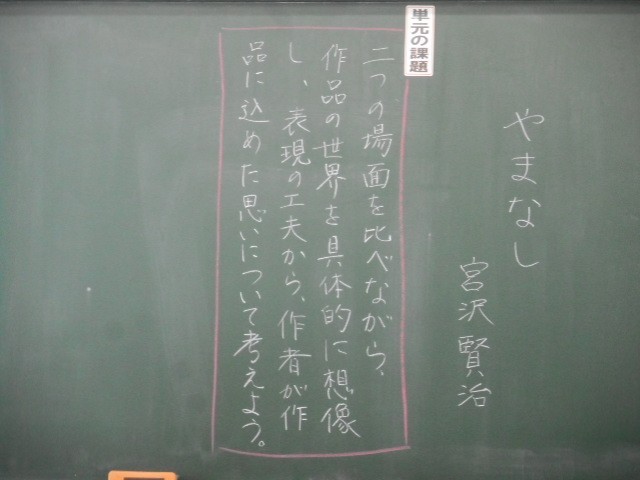 やまなし
宮沢賢治
単元の課題
二つの場面を比べながら、
作品の世界を具体的に想像
し、表現の工夫から、作者が作
品に込めた思いについて考えよう。